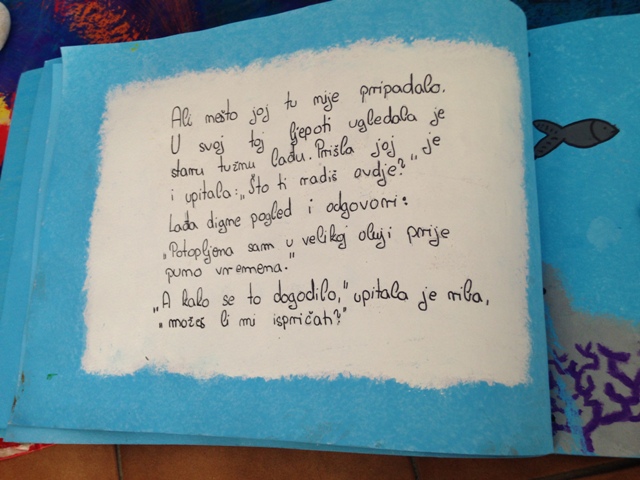 Ali nešto joj tu nije pripadalo.
U svoj toj ljepoti ugledala je
staru tužnu lađu. Prišla joj je
i upitala: „Što ti radiš ovdje?"
Lađa digne pogled i odgovori:
„Potopljena sam u velikoj oluji prije
puno vremena."
„A kako se to dogodilo," upitala je riba,
„možeš li mi ispričati?"